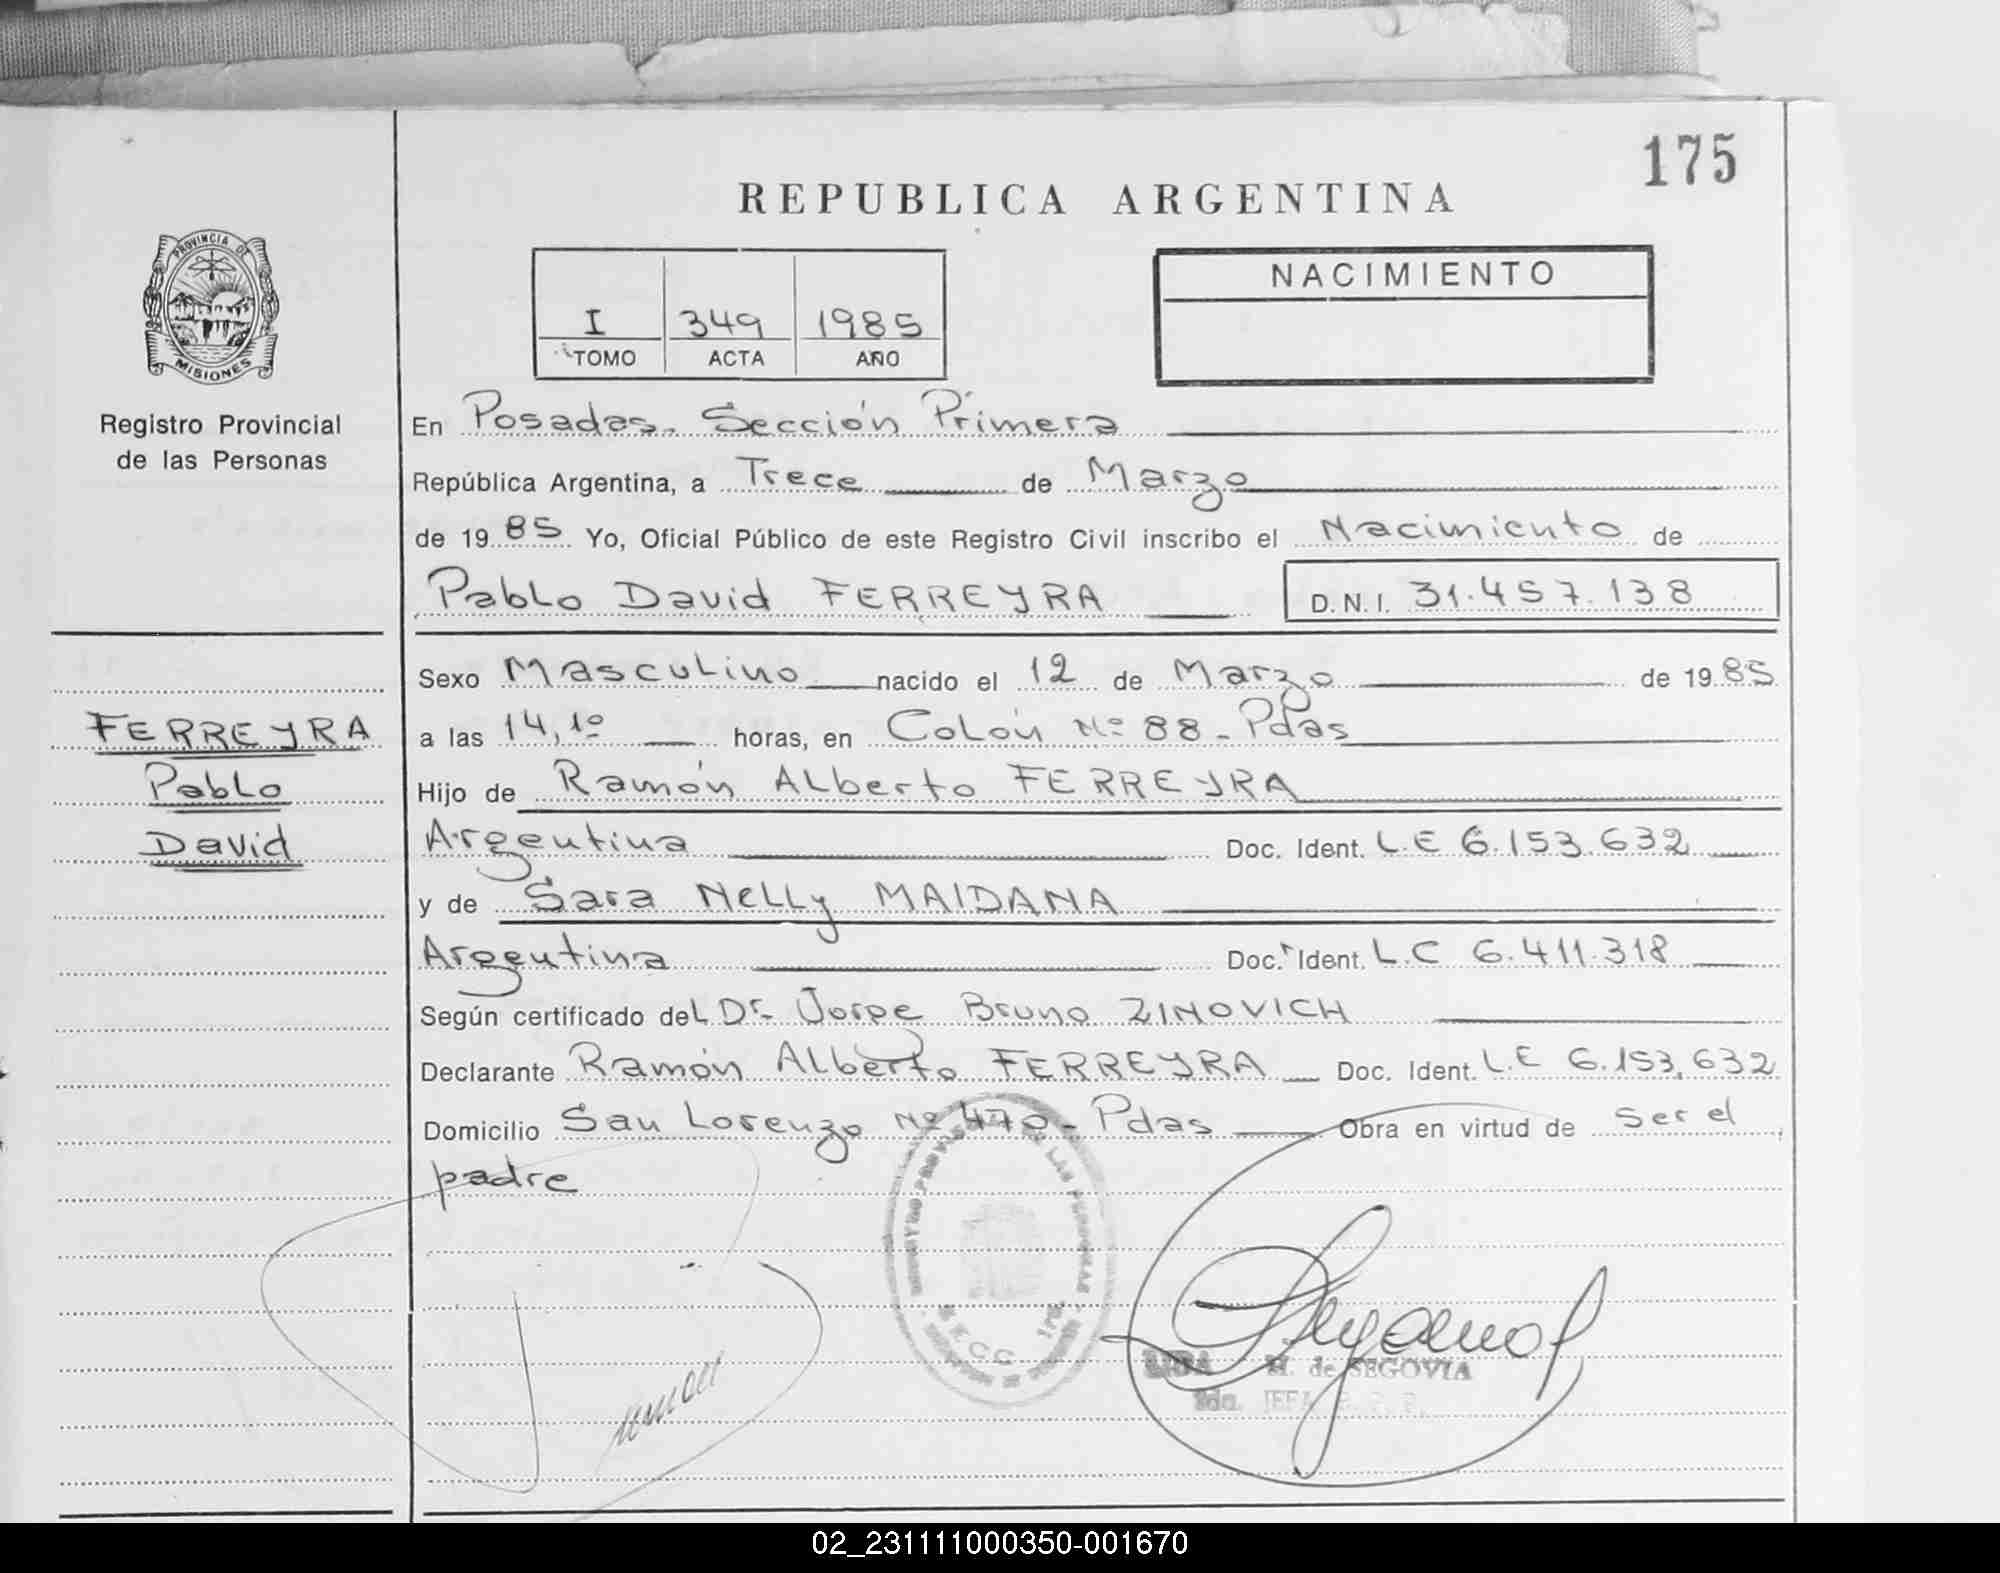 175
REPUBLICA ARGENTINA
PROVINCIA DE
MISIONES
Registro Provincial
de las Personas
I 349 1985
TOMO ACTA AÑO
NACIMIENTO
En Posadas. Sección Primera
República Argentina, a Trece de Marzo
de 19 85 Yo, Oficial Público de este Registro Civil inscribo el Nacimiento de
Pablo David FERREYRA D.N.I. 31.457.138
Sexo Masculino nacido el 12 de Marzo de 19 85
FERREYRA
Pablo
David
a las 14,10 horas, en Colón Nº 88 - Pdas
Hijo de Ramón Alberto FERREYRA
Argentina Doc. Ident. L.E 6.153.632
y de Sara Nelly MAIDANA
Argentina Doc. Ident. L.C 6.411.318
Según certificado del Dr. Jorge Bruno ZINOVICH
Declarante Ramón Alberto FERREYRA Doc. Ident. L.E 6.153,632
Domicilio San Lorenzo Nº 470 - Pdas Obra en virtud de ser el
padre
M. de SEGOVIA
2da. JEFA
02_231111000350-001670